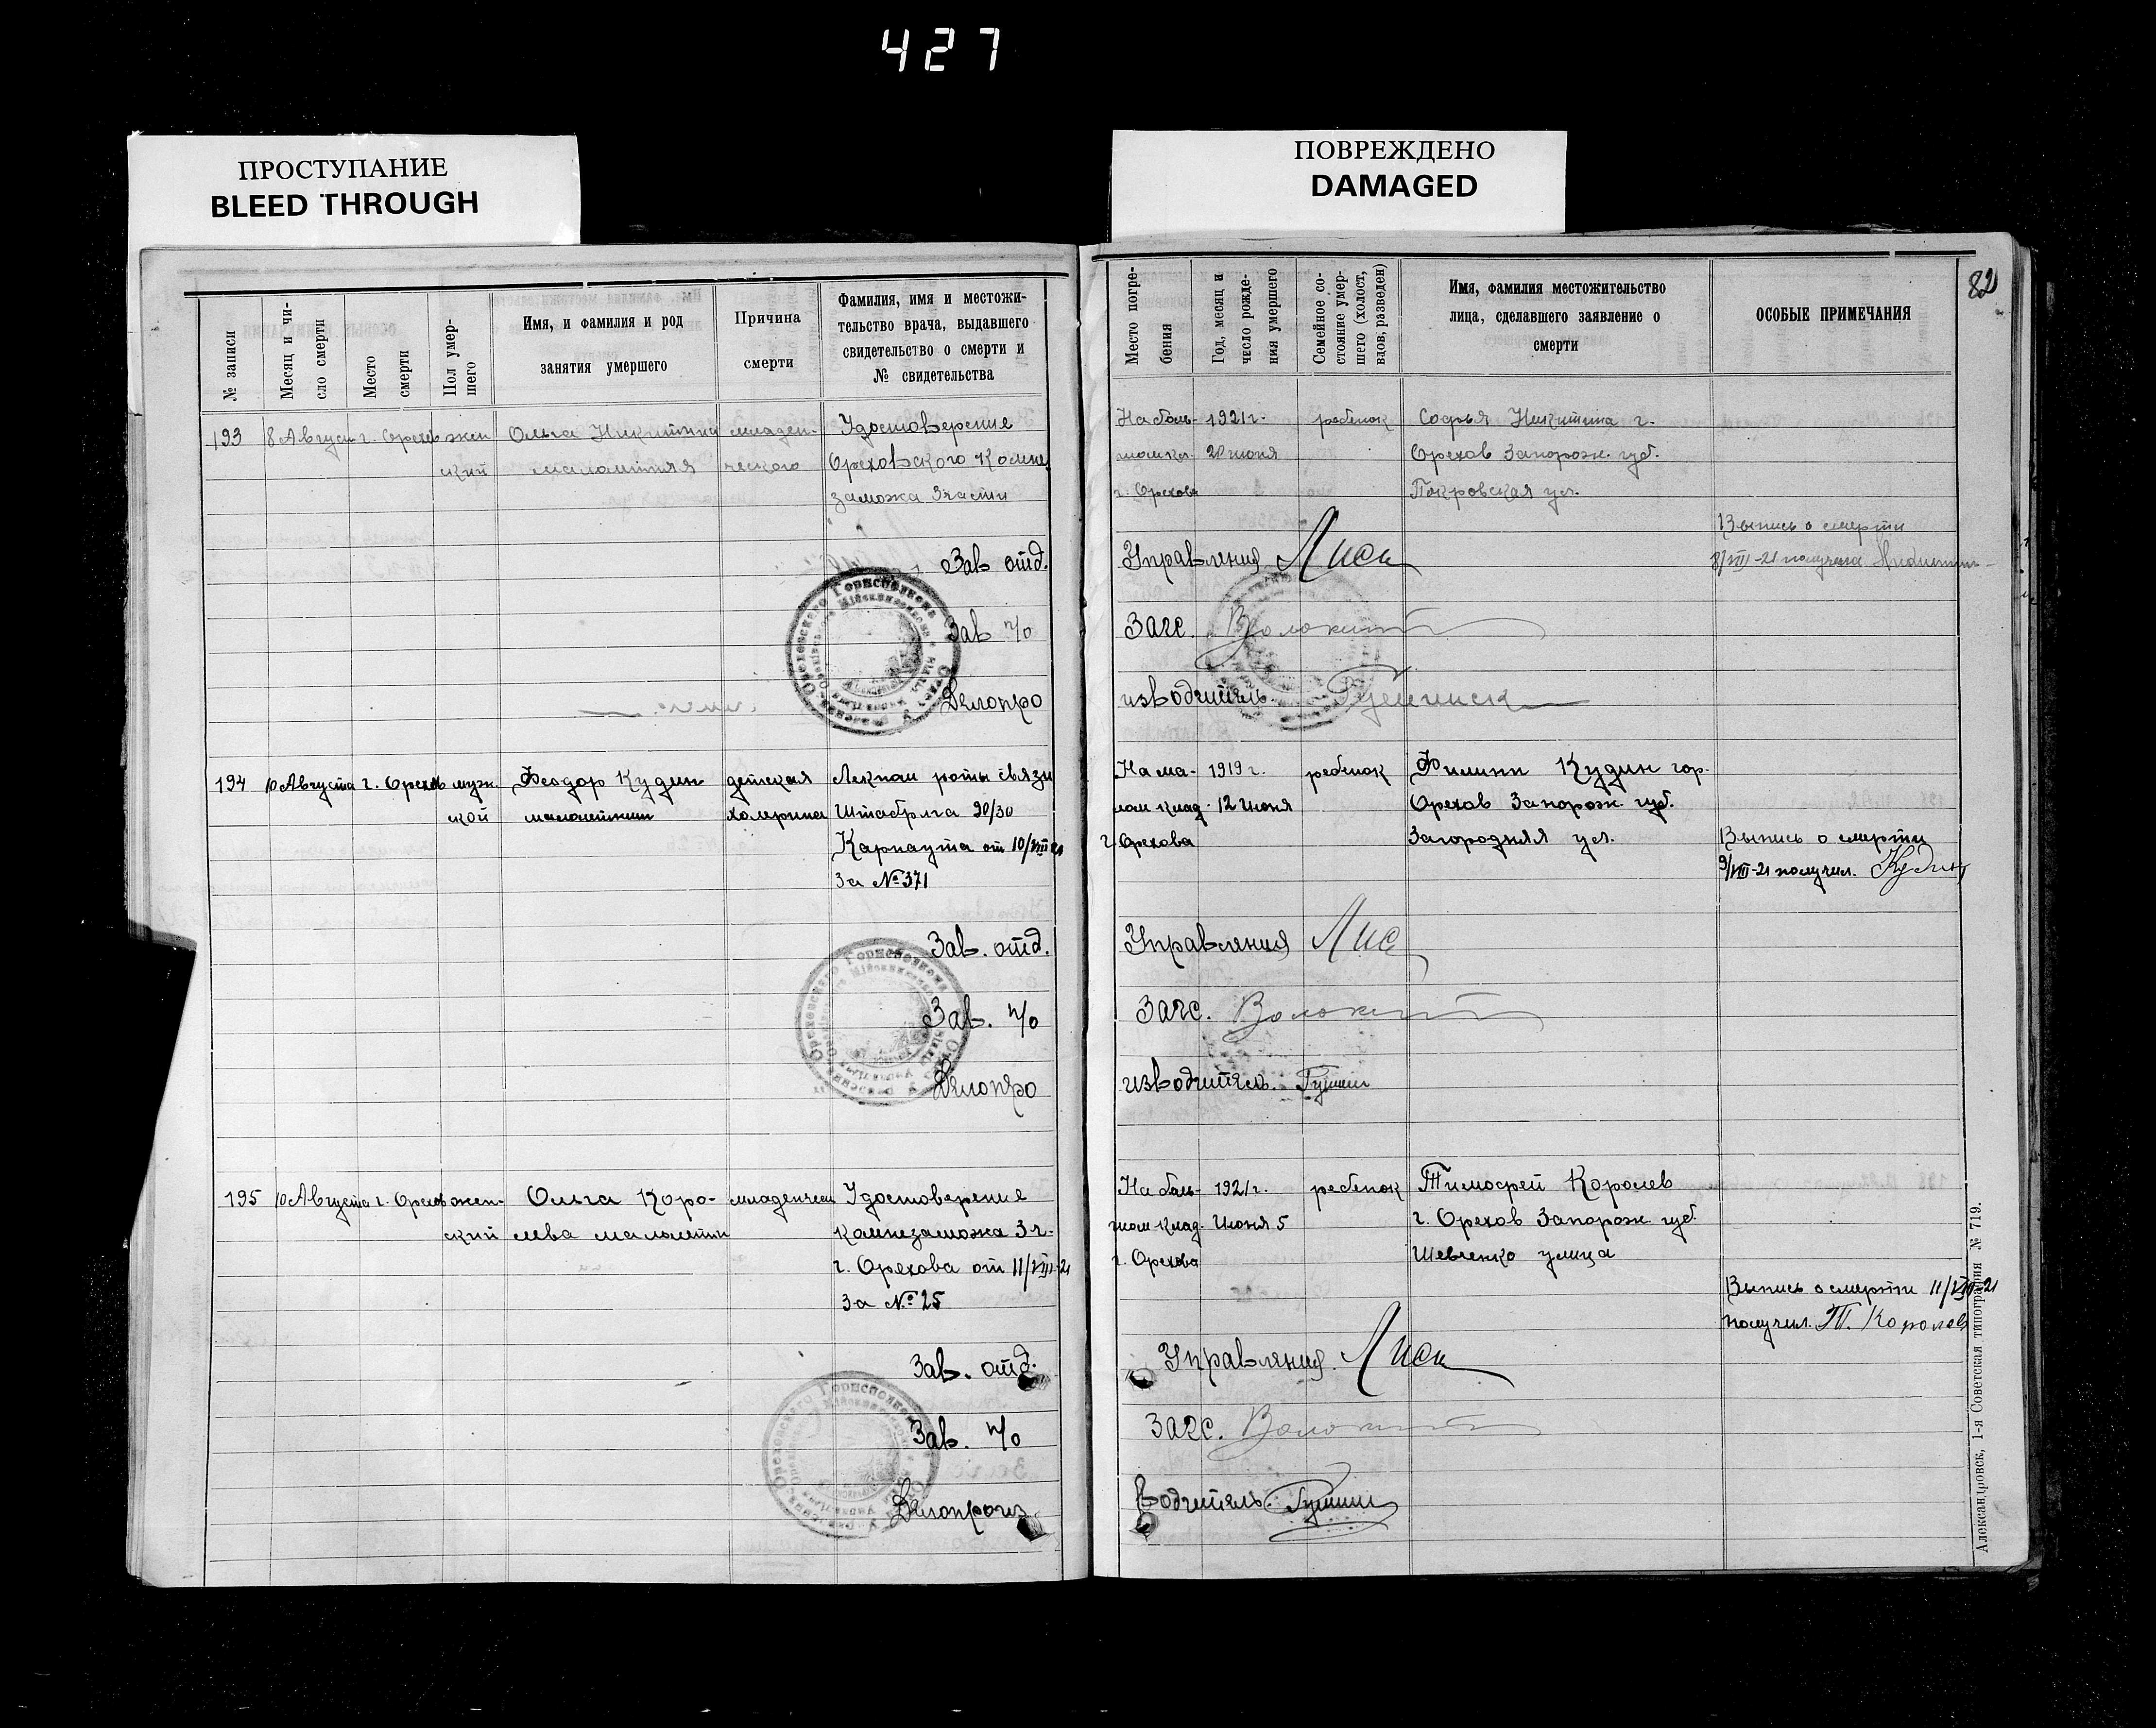 427
ПРОСТУПАНИЕ
BLEED THROUGH
ПОВРЕЖДЕНО
DAMAGED
82
№ записи
Месяц и чи-
сло смерти
Место
смерти
Пол умер-
шего
Имя, и фамилия и род
занятия умершего
Причина
смерти
Фамилия, имя и местожи-
тельство врача, выдавшего
свидетельство о смерти и
№ свидетельства
Место погре-
бения
Год, месяц и
число рожде-
ния умершего
Семейное со-
стояние умер-
шего (холост,
вдов, разведен)
Имя, фамилия местожительство
лица, сделавшего заявление о
смерти
ОСОБЫЕ ПРИМЕЧАНИЯ
193 8 Август г. Орехов жен
Ольга Никитина младен-
Удостоверение
ский малолетняя ческого
Ореховского Комне
заможа 3 части
На боль- 1921 г. ребенок Софья Никитина г.
20 июня Орехов Запорож. губ.
г. Орехова Покровская ул.
Выпись о смерти
8/VIII-21 получена
Зав отд. Управления Лиси
Зав п/о Загс.
Делопро изводитель
194 10 Августа г. Орехов муж
Феодор Кудин детская Лекпом роты связи
ской малолетний холерина Штабрига 90/30
Карпаута от 10/VIII 21
За № 371
На ма- 1919 г. ребенок Филипп Кудин гор.
лом клад. 12 Июня Орехов Запорож. губ.
г. Орехова Загородняя ул. Выпись о смерти
9/VIII-21 получил. Кудин
Зав. отд. Управления Лис
Зав. п/о Загс.
Делопро изводитель.
195 10 Августа г. Орехов жен-
Ольга Коро- младенческ Удостоверение
ский лева малолетн комнезаможа 3 ч.
г. Орехова от 11/VIII-21
За № 25
На боль- 1921 г. ребенок Тимофей Королев
шом клад. Июня 5 г. Орехов Запорож губ.
г. Орехова Шевченко улица
Выпись о смерти 11/VIII-21
получил. Т. Королев
Зав. отд. Управления. Лиси
Зав. п/о Загс.
Делопроиз водитель.
Александровск, 1-я Советская типография № 719.